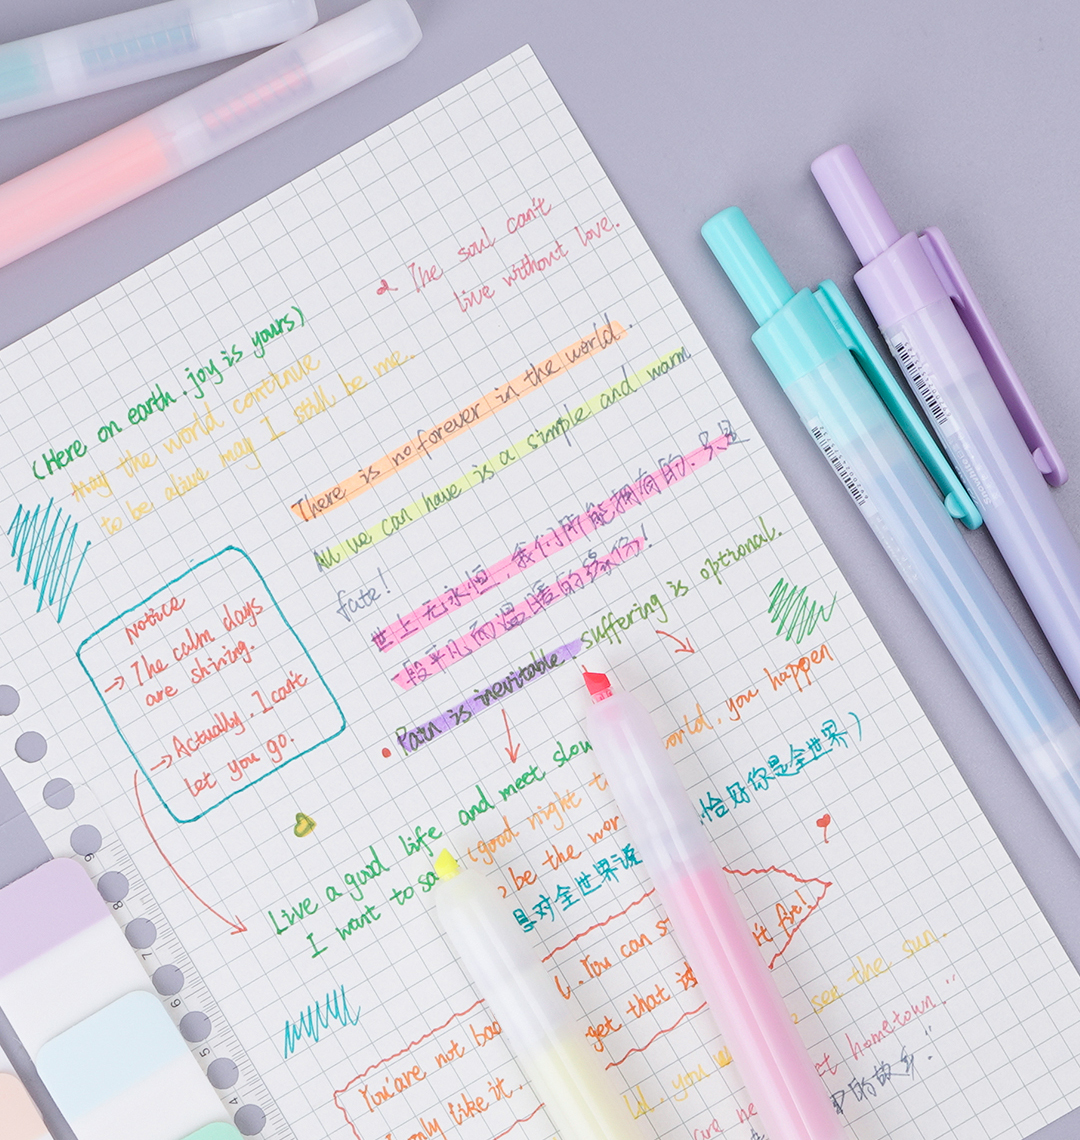 The soul can't
live without love.
(Here on earth. joy is yours)
May the world continue
to be alive may I still be me.
There is no forever in the world.
All we can have is a simple and warm
fate!
世上无永恒，我们所能拥有的，只是
一段平凡而温暖的缘份！
Pain is inevitable. suffering is optional.
Notice
→ The calm days
are shining.
→ Actually. I can't
let you go.
Live a good life and meet slow
I want to sa
(good night t
world, you happen
be the wor
恰好你是全世界)
是对全世界说
You can s
't fit!
get that i
You are not bad
only like it.
see the sun.
ld, you
t hometown."
are ne
中的故乡."
9
8
7
6
5
4